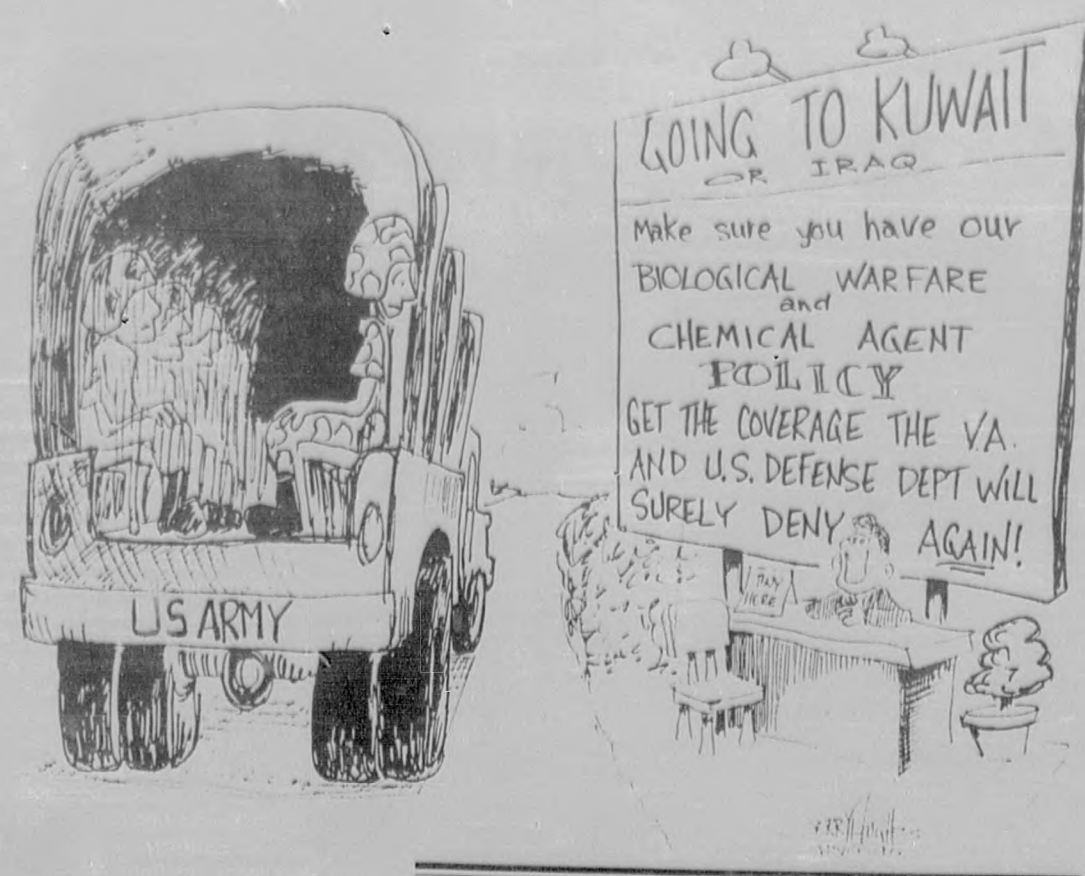 GOING TO KUWAIT
OR IRAQ
Make sure you have our
BIOLOGICAL WARFARE
and
CHEMICAL AGENT
POLICY
GET THE COVERAGE THE V.A.
AND U.S. DEFENSE DEPT WILL
SURELY DENY AGAIN!
PAY
HERE
US ARMY